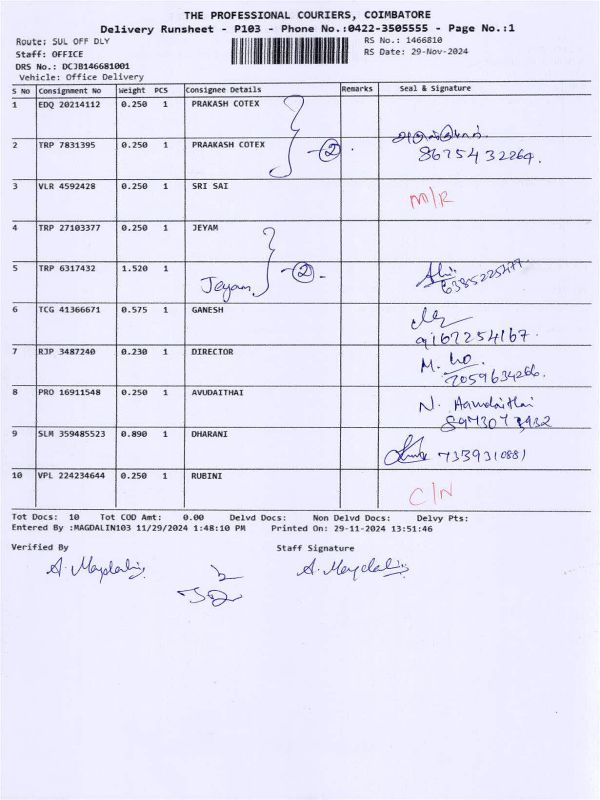 THE PROFESSIONAL COURIERS, COIMBATORE
Delivery Runsheet - P103 - Phone No.:0422-3505555 - Page No.:1
Route: SUL OFF DLY RS No.: 1466810
Staff: OFFICE RS Date: 29-Nov-2024
DRS No.: DCJB146681001
Vehicle: Office Delivery
S No Consignment No Weight PCS Consignee Details Remarks Seal & Signature
1 EDQ 20214112 0.250 1 PRAKASH COTEX
2 TRP 7831395 0.250 1 PRAAKASH COTEX - 2 8675432264.
3 VLR 4592428 0.250 1 SRI SAI M/R
4 TRP 27103377 0.250 1 JEYAM
5 TRP 6317432 1.520 1 Jeyam - 2 6385225477
6 TCG 41366671 0.575 1 GANESH 9167254167.
7 RJP 3487240 0.230 1 DIRECTOR M. 7059634266.
8 PRO 16911548 0.250 1 AVUDAITHAI N. Avudaithai
8973073932
9 SLM 359485523 0.890 1 DHARANI 7339310881
10 VPL 224234644 0.250 1 RUBINI C/N
Tot Docs: 10 Tot COD Amt: 0.00 Delvd Docs: Non Delvd Docs: Delvy Pts:
Entered By :MAGDALIN103 11/29/2024 1:48:10 PM Printed On: 29-11-2024 13:51:46
Verified By Staff Signature
A. Magdalin A. Magdalin